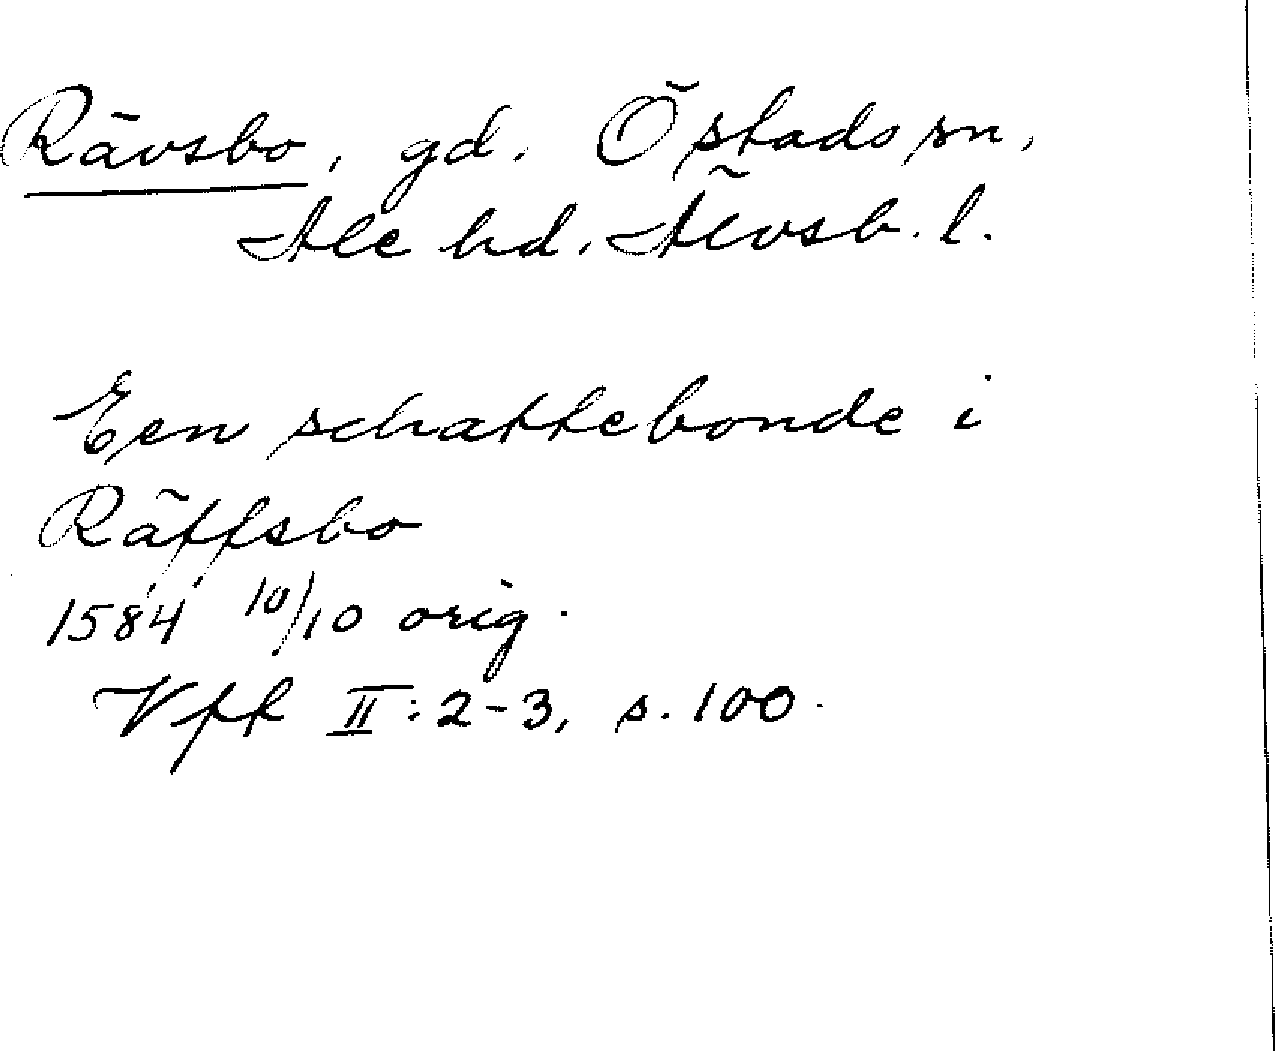 Rävsbo, gd. Östads sn,
Ale hd. Älvsb. l.
Een schattebonde i
Räffsbo
1584 10/10 orig.
Vfk II:2-3, s. 100.